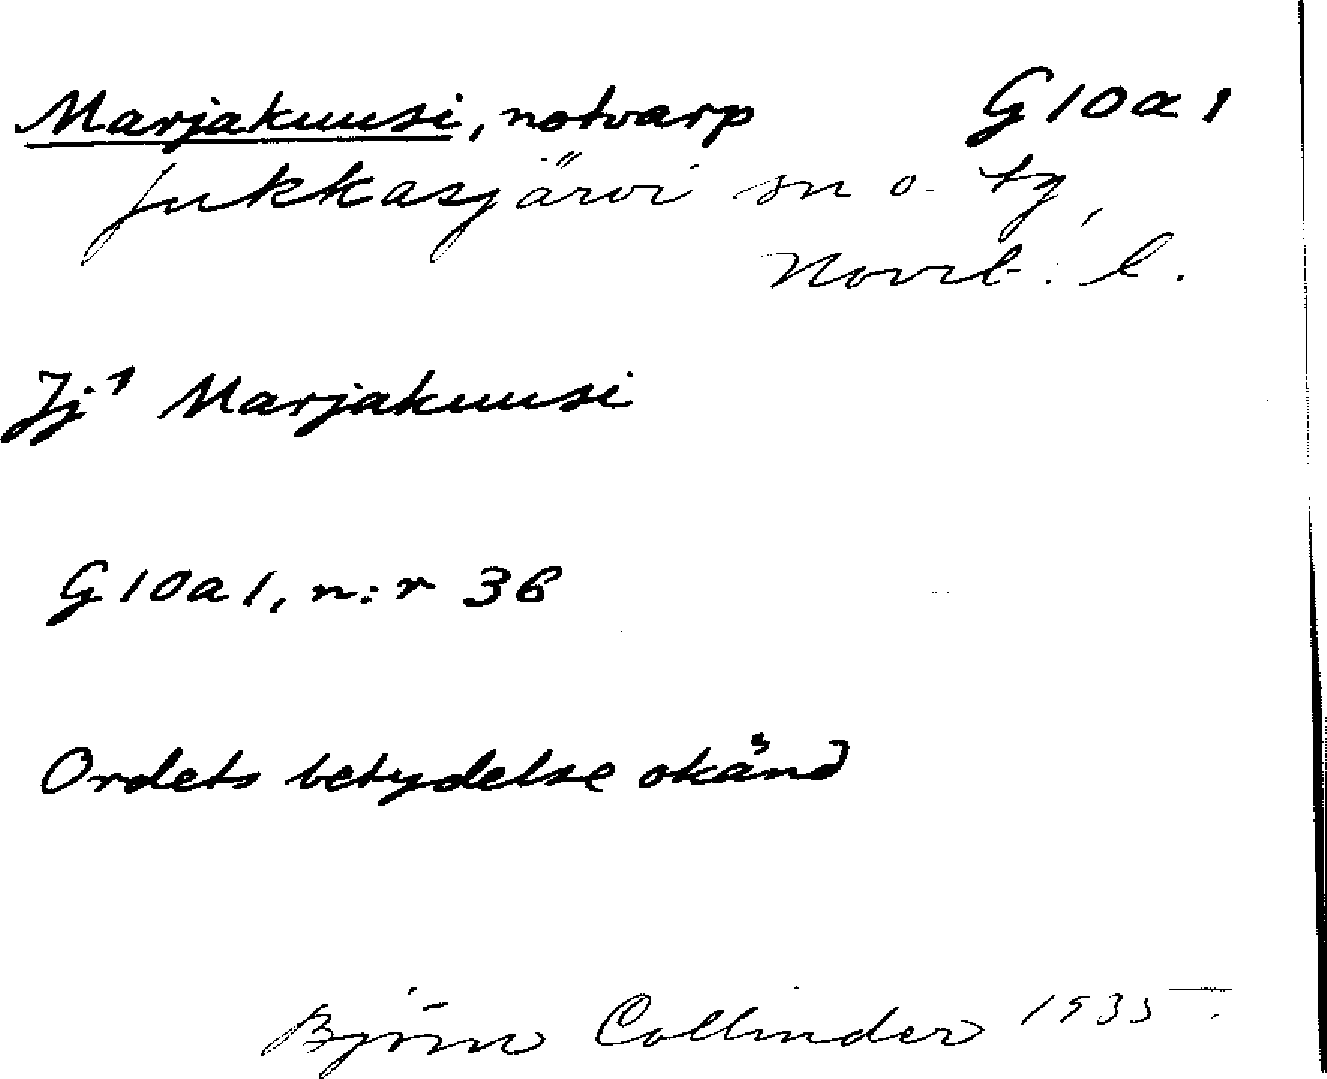 Marjakuusi, notvarp G 10 a 1
Jukkasjärvi sn o. tg,
Norrb. l.
Jj¹ Marjakuusi
G 10 a 1, n:r 36
Ordets betydelse okänd
Björn Collinder 1935.